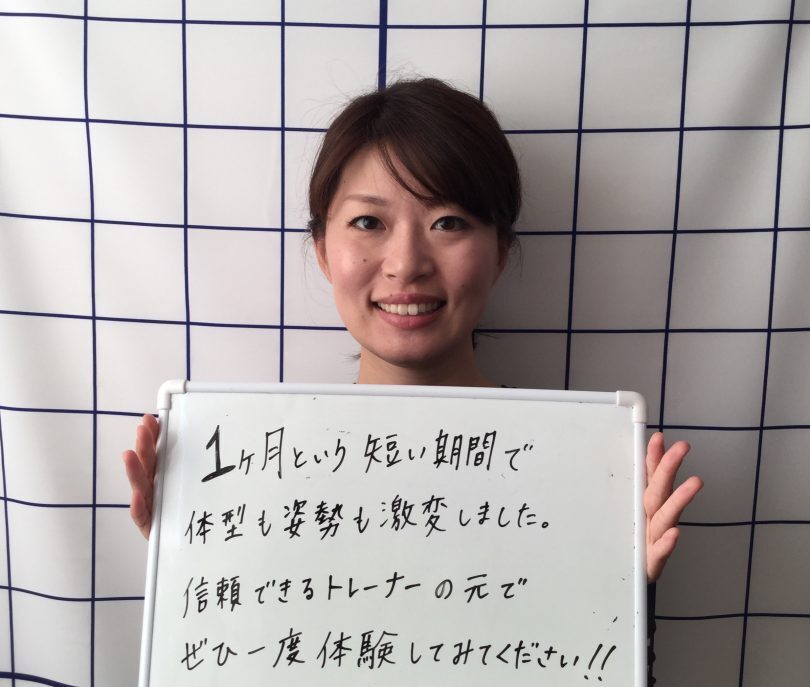 1ヶ月という短い期間で
体型も姿勢も激変しました。
信頼できるトレーナーの元で
ぜひ一度体験してみてください!!